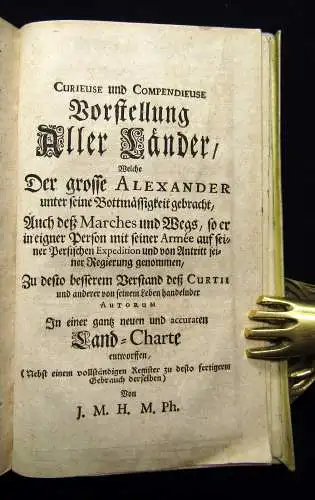 CURIEUSE und COMPENDIEUSE
Vorstellung
Aller Länder/
Welche
Der grosse ALEXANDER
unter seine Bottmässigkeit gebracht,
Auch deß Marches und Wegs, so er
in eigner Person mit seiner Armée auf sei-
ner Persischen Expedition und von Antritt sei-
ner Regierung genommen,
Zu desto besserem Verstand deß CURTII
und anderer von seinem Leben handelnder
AUTORUM
In einer gantz neuen und accuraten
Land-Charte
entworffen,
(Nebst einem vollständigen Register zu desto fertigerm
Gebrauch derselben)
Von
J. M. H. M. Ph.